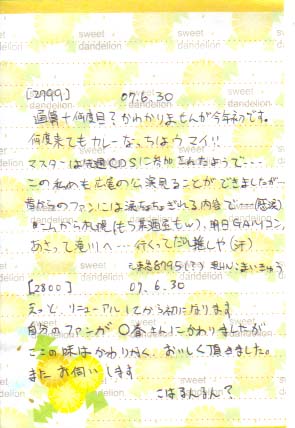 sweet
dandelion
[2799] 07.6.30
通算十何度目?かわかりませんが今年初です。
何度来てもカレーなっちゃうウマイ!!
マスターは先週CDSに参加されたようで・・・
この私めも広尾の公演見ることができましたが…
昔からのファンには涙ちょちぎれる内容で…(感涙)
ここから札幌(もち某酒室もw)、明日
あさって滝川へ…行くってだし
[2800] 07.6.30
えっと、リニューアルしてから初になります
自分のファンが〇春さんにかわりましたが
ここの味はかわりなく、おいしく頂きました。
またお伺いします
こはるんるん?